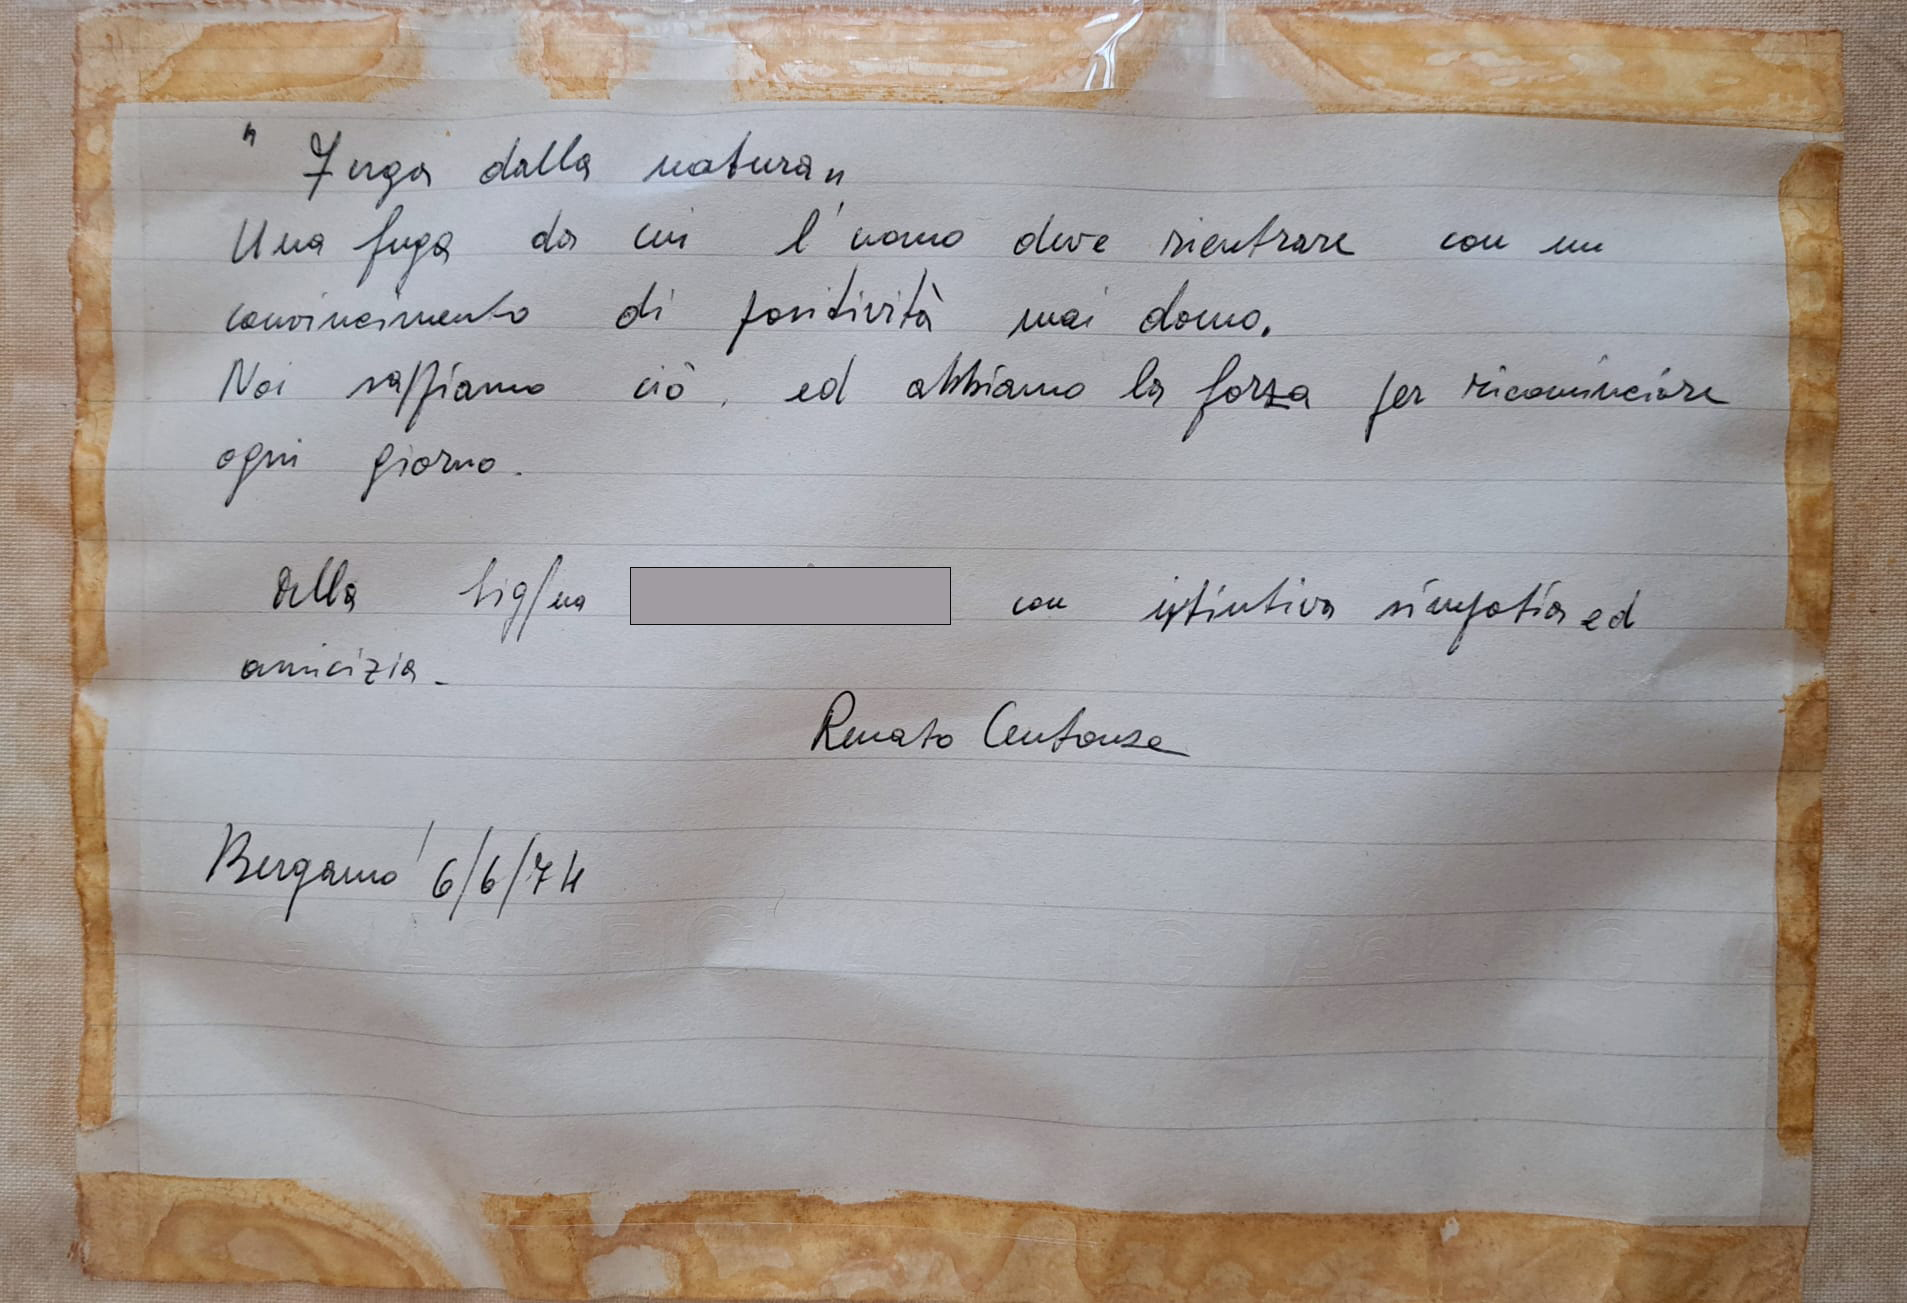 " Fuga dalla natura "
Una fuga da cui l'uomo deve rientrare con un
convincimento di positività mai domo.
Noi sappiamo ciò, ed abbiamo la forza per ricominciare
ogni giorno.
Alla Sig/na con istintiva simpatia ed
amicizia.
Renato Centonze
Bergamo 6/6/74